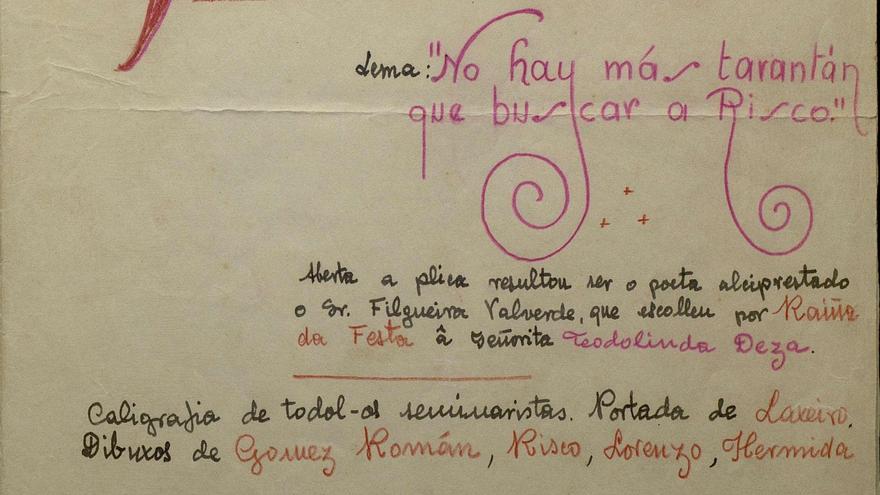 Lema: "No hay más tarantán
que buscar a Risco."
Aberta a plica resultou ser o poeta alciprestado
o Sr. Filgueira Valverde, que escolleu por Raiña
da Festa â señorita Teodolinda Deza.
Caligrafia de todol-os seminaristas. Portada de Laxeiro.
Dibuxos de Gomez Román, Risco, Lorenzo, Hermida